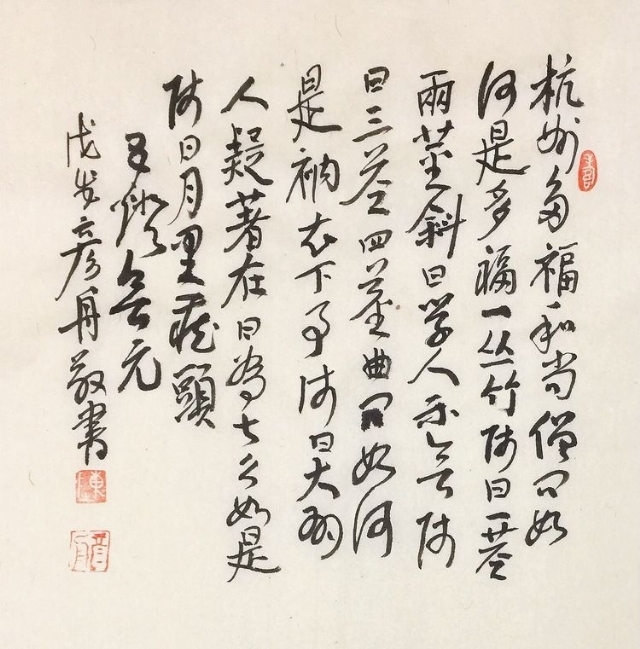 杭州多福和尚僧问如
何是多福一丛竹师曰一莖
兩莖斜曰学人不会师
曰三莖四莖曲问如何
是衲衣下事师曰大有
人疑著在曰為什么如是
师曰月里藏頭
五燈会元
戊戌彦舟敬書